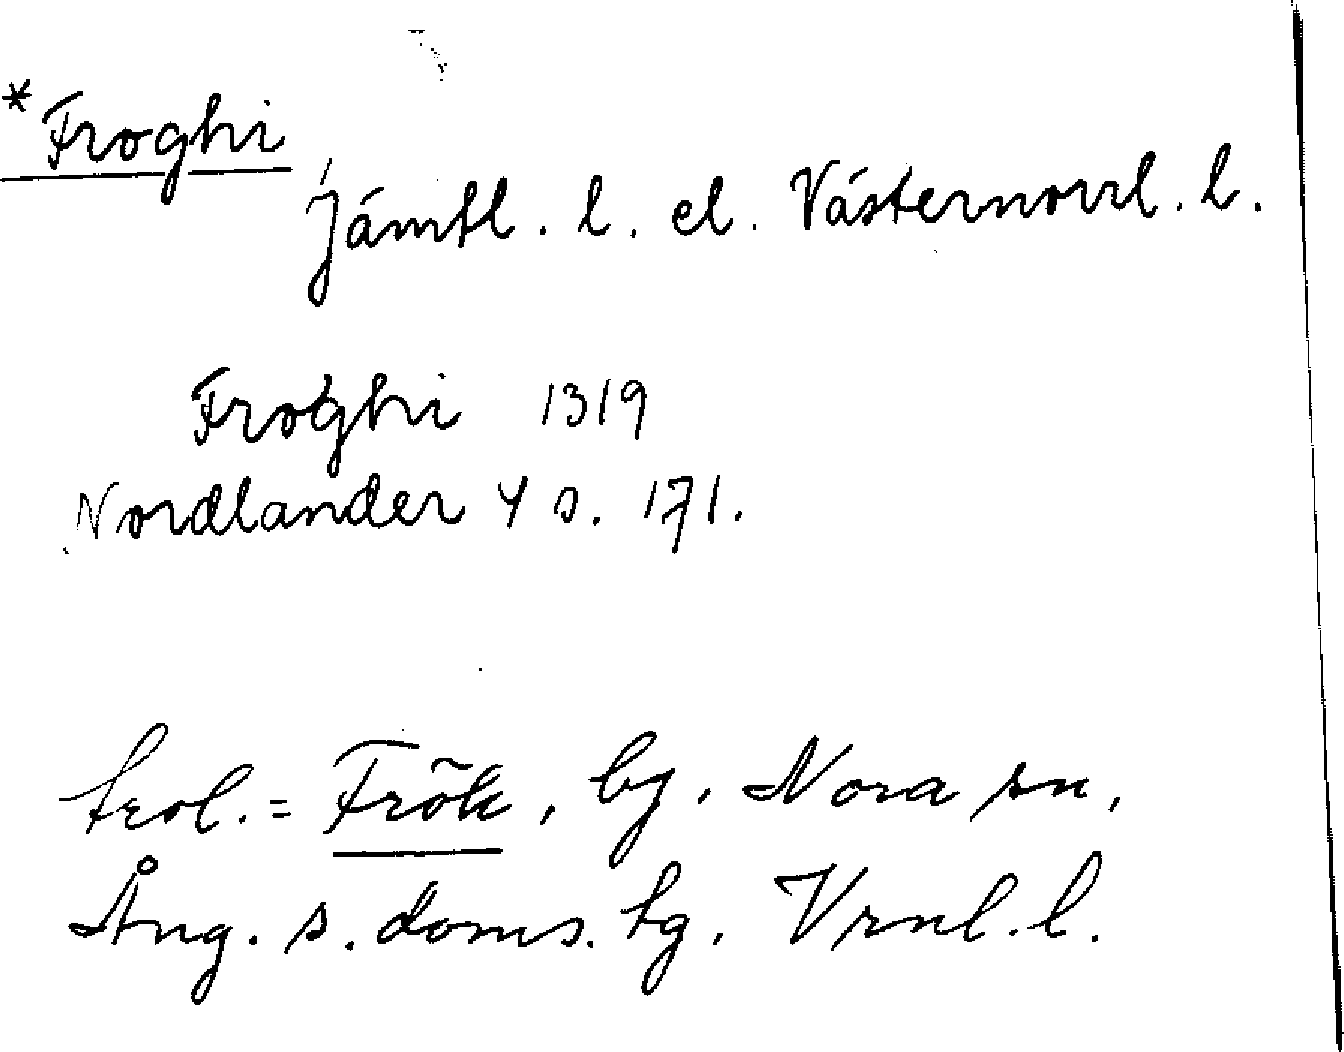 *Froghi
Jämtl. l. el. Västernorrl. l.
Froghi 1319
Nordlander 4 s. 171.
trol. = Frök, by, Nora sn,
Ång. s. doms. tg, Vrnl. l.